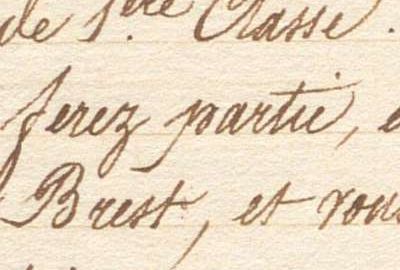 de 1.ère Classe.
ferez partie,
Brest, et vous